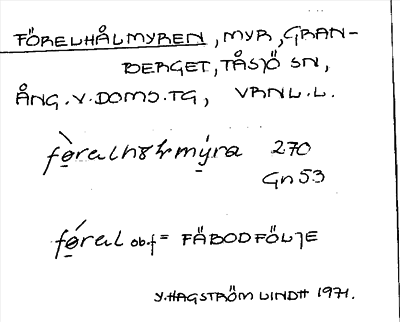 FÖRELHÅLMYREN, MYR, GRAN-
BERGET, TÅSJÖ SN,
ÅNG. V. DOMS. TG, VRNL. L.
270
Gn 53
føral ob.f = FÄBODFÖLJE
Y. HAGSTRÖM LINDH 1971.